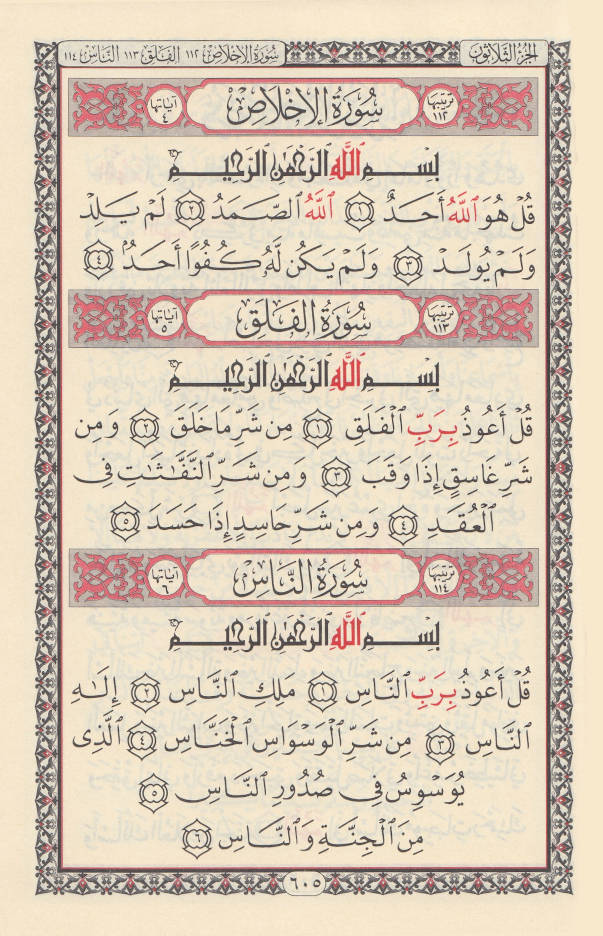 الجزء الثلاثون
سورة الإخلاص ١١٢ الفلق ١١٣ الناس ١١٤
ترتيبها ١١٢ سُورَةُ الإِخْلَاصِ آياتها ٤
بِسْمِ ٱللَّهِ ٱلرَّحْمَٰنِ ٱلرَّحِيمِ
قُلْ هُوَ ٱللَّهُ أَحَدٌ ١ ٱللَّهُ ٱلصَّمَدُ ٢ لَمْ يَلِدْ
وَلَمْ يُولَدْ ٣ وَلَمْ يَكُن لَّهُۥ كُفُوًا أَحَدٌۢ ٤
ترتيبها ١١٣ سُورَةُ الْفَلَقِ آياتها ٥
بِسْمِ ٱللَّهِ ٱلرَّحْمَٰنِ ٱلرَّحِيمِ
قُلْ أَعُوذُ بِرَبِّ ٱلْفَلَقِ ١ مِن شَرِّ مَا خَلَقَ ٢ وَمِن
شَرِّ غَاسِقٍ إِذَا وَقَبَ ٣ وَمِن شَرِّ ٱلنَّفَّٰثَٰتِ فِى
ٱلْعُقَدِ ٤ وَمِن شَرِّ حَاسِدٍ إِذَا حَسَدَ ٥
ترتيبها ١١٤ سُورَةُ النَّاسِ آياتها ٦
بِسْمِ ٱللَّهِ ٱلرَّحْمَٰنِ ٱلرَّحِيمِ
قُلْ أَعُوذُ بِرَبِّ ٱلنَّاسِ ١ مَلِكِ ٱلنَّاسِ ٢ إِلَٰهِ
ٱلنَّاسِ ٣ مِن شَرِّ ٱلْوَسْوَاسِ ٱلْخَنَّاسِ ٤ ٱلَّذِى
يُوَسْوِسُ فِى صُدُورِ ٱلنَّاسِ ٥
مِنَ ٱلْجِنَّةِ وَٱلنَّاسِ ٦
٦٠٥